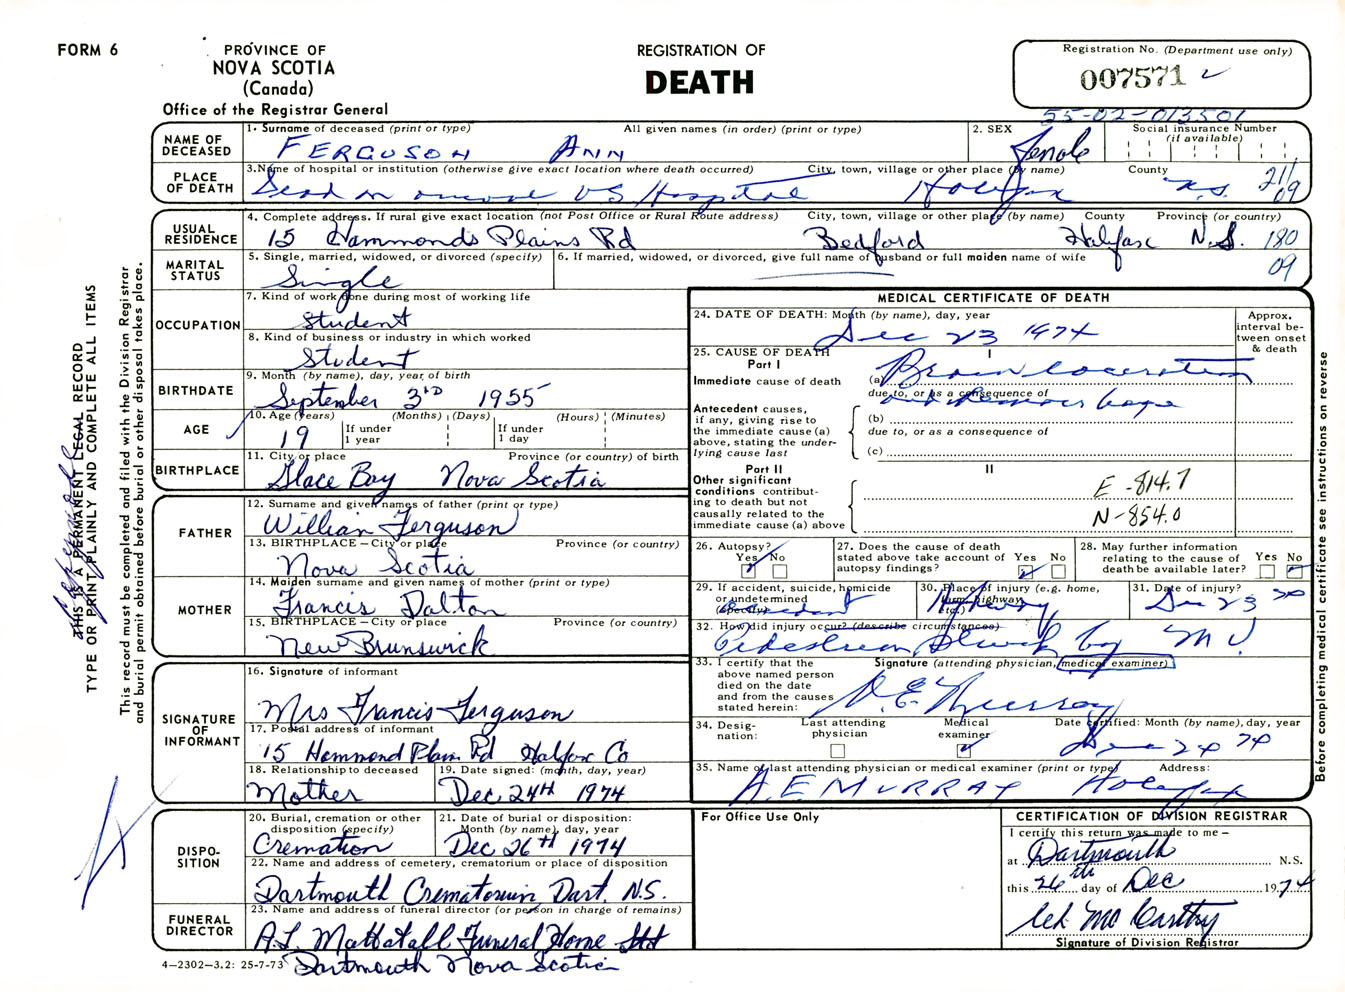 FORM 6
PROVINCE OF
NOVA SCOTIA
(Canada)
Office of the Registrar General
REGISTRATION OF
DEATH
Registration No. (Department use only)
007571
55-02-013501
NAME OF DECEASED
1. Surname of deceased (print or type) All given names (in order) (print or type)
FERGUSON ANN
2. SEX
Female
Social insurance Number
(if available)
PLACE OF DEATH
3. Name of hospital or institution (otherwise give exact location where death occurred) City, town, village or other place (by name) County
Dead on arrival VG Hospital Halifax N.S. 21/09
USUAL RESIDENCE
4. Complete address. If rural give exact location (not Post Office or Rural Route address) City, town, village or other place (by name) County Province (or country)
15 Hammonds Plains Rd Bedford Halifax N.S. 180
09
MARITAL STATUS
5. Single, married, widowed, or divorced (specify)
Single
6. If married, widowed, or divorced, give full name of husband or full maiden name of wife
OCCUPATION
7. Kind of work done during most of working life
Student
8. Kind of business or industry in which worked
Student
BIRTHDATE
9. Month (by name), day, year of birth
September 3RD 1955
AGE
10. Age (Years) (Months) (Days) (Hours) (Minutes)
19 If under 1 year If under 1 day
BIRTHPLACE
11. City or place Province (or country) of birth
Glace Bay Nova Scotia
FATHER
12. Surname and given names of father (print or type)
William Ferguson
13. BIRTHPLACE – City or place Province (or country)
Nova Scotia
MOTHER
14. Maiden surname and given names of mother (print or type)
Francis Dalton
15. BIRTHPLACE – City or place Province (or country)
New Brunswick
SIGNATURE OF INFORMANT
16. Signature of informant
Mrs Francis Ferguson
17. Postal address of informant
15 Hammond Plain Rd Halifax Co
18. Relationship to deceased
Mother
19. Date signed: (month, day, year)
Dec 24th 1974
DISPOSITION
20. Burial, cremation or other disposition (specify)
Cremation
21. Date of burial or disposition: Month (by name), day, year
Dec 26th 1974
22. Name and address of cemetery, crematorium or place of disposition
Dartmouth Crematorium Dart. N.S.
FUNERAL DIRECTOR
23. Name and address of funeral director (or person in charge of remains)
A.L. Mattatall Funeral Home Ltd
Dartmouth Nova Scotia
4–2302–3.2: 25-7-73
MEDICAL CERTIFICATE OF DEATH
24. DATE OF DEATH: Month (by name), day, year
Dec 23 1974
Approx. interval between onset & death
25. CAUSE OF DEATH
Part I
I
Immediate cause of death
(a) Brain laceration
due to, or as a consequence of
and hemorrhage
Antecedent causes, if any, giving rise to the immediate cause (a) above, stating the underlying cause last
(b)
due to, or as a consequence of
(c)
Part II
II
Other significant conditions contributing to death but not causally related to the immediate cause (a) above
E-814.7
N-854.0
26. Autopsy?
Yes No
27. Does the cause of death stated above take account of autopsy findings?
Yes No
28. May further information relating to the cause of death be available later?
Yes No
29. If accident, suicide, homicide or undetermined (specify)
accident
30. Place of injury (e.g. home, farm, highway etc.)
Highway
31. Date of injury?
Dec 23 74
32. How did injury occur? (describe circumstances)
Pedestrian struck by M V.
33. I certify that the above named person died on the date and from the causes stated herein:
Signature (attending physician, medical examiner)
A.E. Murray
34. Designation:
Last attending physician
Medical examiner
Date certified: Month (by name), day, year
Dec 24 74
35. Name of last attending physician or medical examiner (print or type) Address:
A.E MURRAY Halifax
For Office Use Only
CERTIFICATION OF DIVISION REGISTRAR
I certify this return was made to me –
at Dartmouth N.S.
this 26th day of Dec 1974
McCarthy
Signature of Division Registrar
THIS IS A PERMANENT LEGAL RECORD
TYPE OR PRINT PLAINLY AND COMPLETE ALL ITEMS
This record must be completed and filed with the Division Registrar
and burial permit obtained before burial or other disposal takes place.
Before completing medical certificate see instructions on reverse